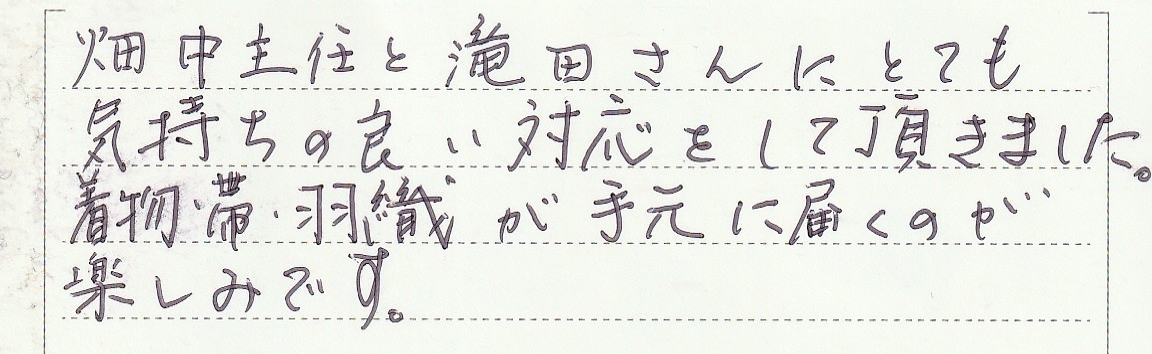 畑中主任と滝田さんにとても
気持ちの良い対応をして頂きました。
着物・帯・羽織が手元に届くのが
楽しみです。